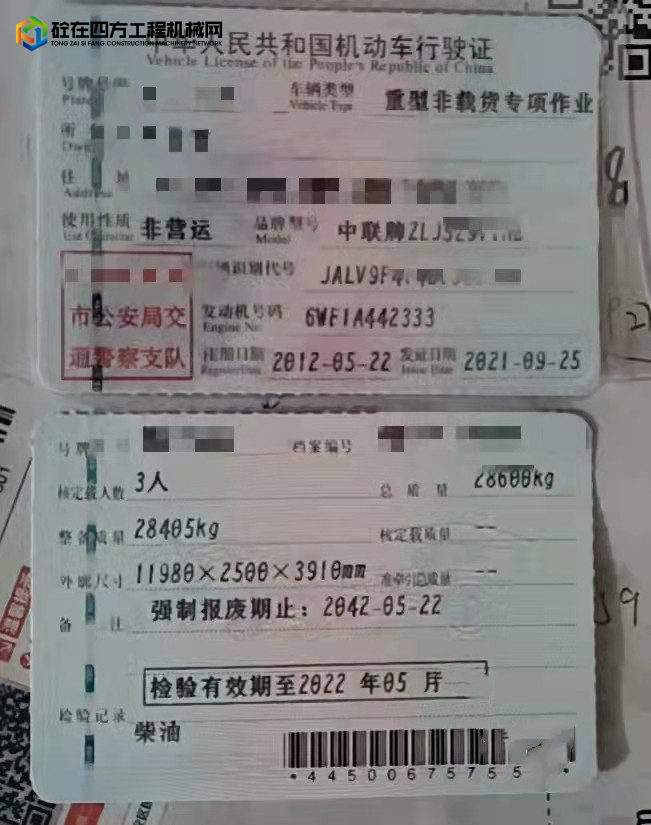 砼在四方工程机械网
TONG ZAI SI FANG CONSTRUCTION MACHINERY NETWORK
人民共和国机动车行驶证
Vehicle License of the People's Republic of China
号牌号码 车辆类型 重型非载货专项作业
Plate Vehicle Type
所
住 址
Address
使用性质 非营运 品牌型号 中联牌ZLJ529
Use Character Model
识别代号 JALV9F
市公安局交
通警察支队
发动机号码 6WF1A442333
Engine No.
注册日期 2012-05-22 发证日期 2021-09-25
Register Date Issue Date
号牌 档案编号
核定载人数 3人 总质量 28600kg
整备质量 28405kg 核定载质量 --
外廓尺寸 11980×2500×3910mm 准牵引总质量 --
备注 强制报废期止：2042-05-22
检验有效期至2022 年05 月
检验记录
柴油
*44500675755